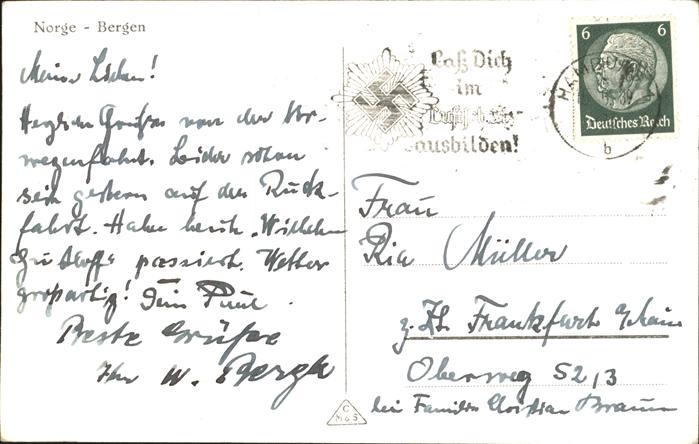 Norge - Bergen
Meine Lieben!
Herzliche Grüße von der Nor-
wegenfahrt. Leider schon
seit gestern auf der Rück-
fahrt. Haben heute „Wilhelm
Gustloff" passiert. Wetter
großartig! Dein Paul.
Beste Grüße
Ihr W. Bergh
Laß Dich
im
Luftschutz
ausbilden!
HAMBURG
b
6 6
Deutsches Reich
Frau
Ria Müller
z. Zt. Frankfurt a/Main
Oberweg 52,3
bei Familie Christian Braun
C
M&S